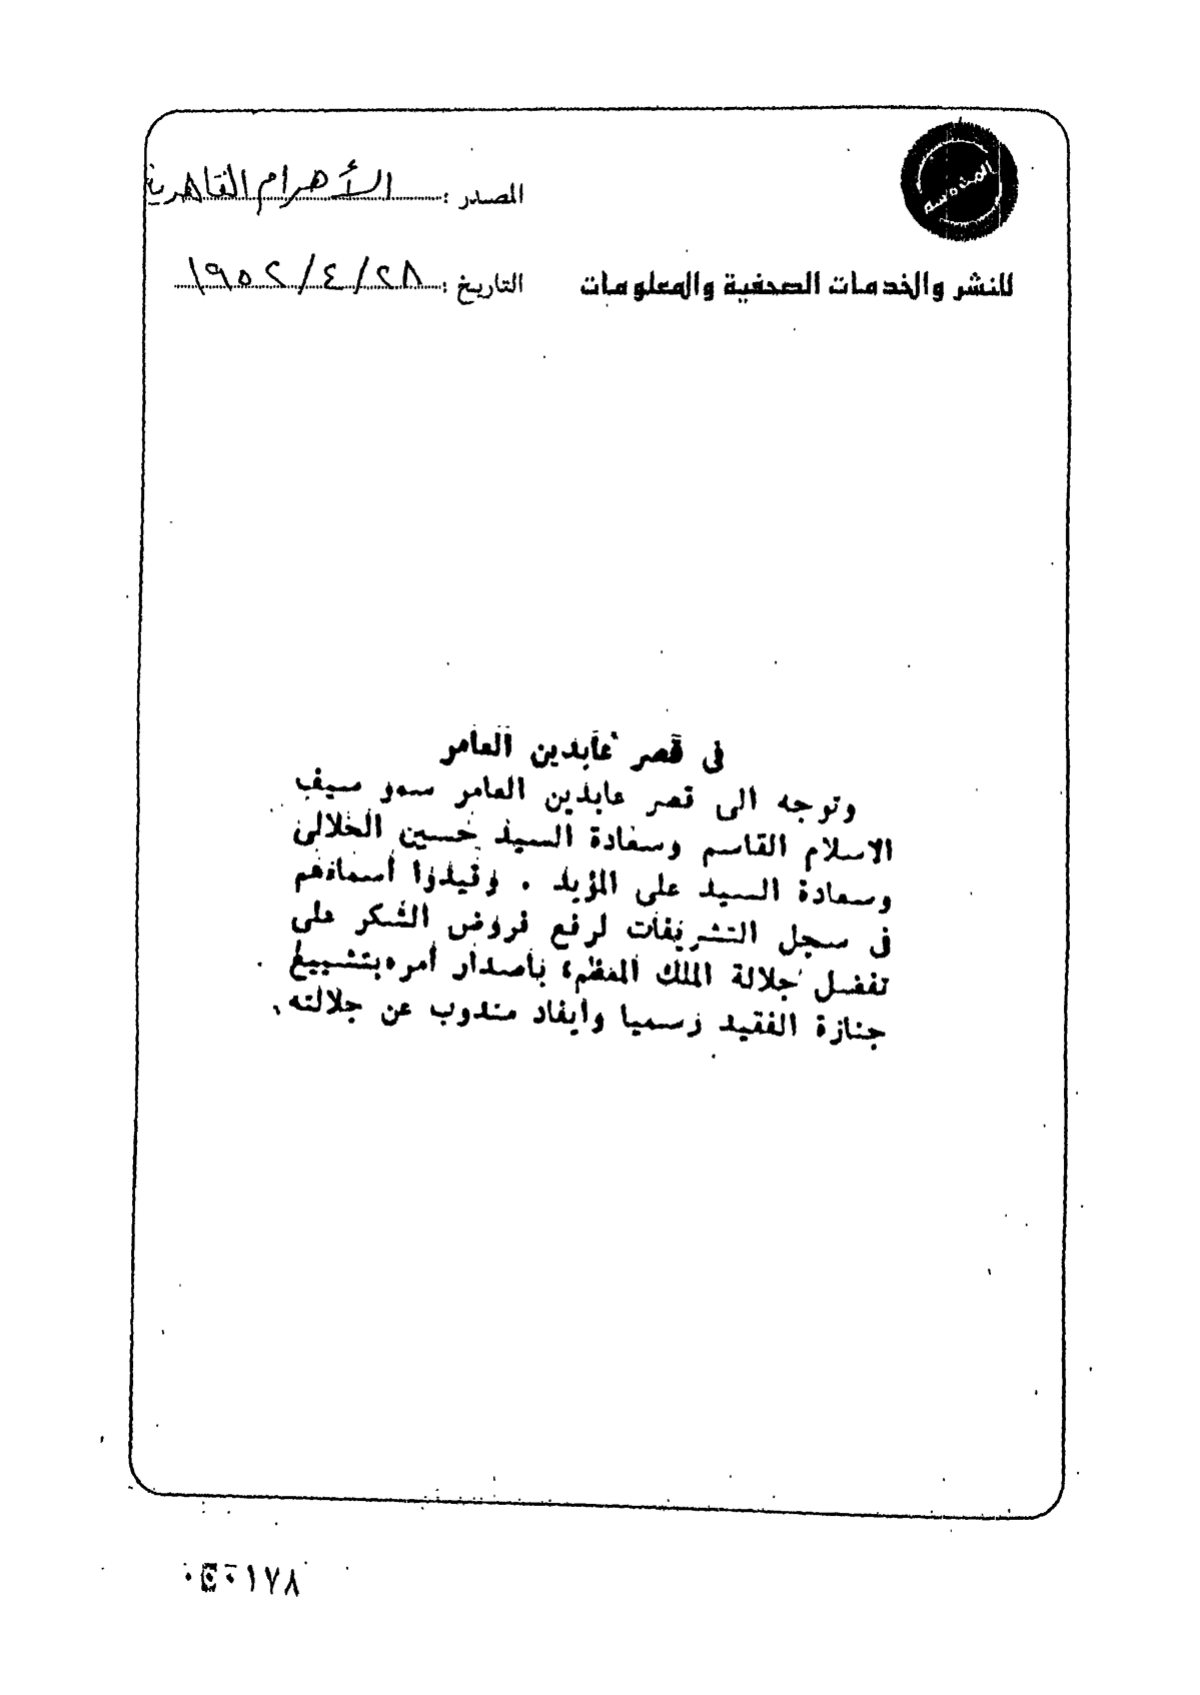 المصدر : الأهرام القاهرية
للنشر والخدمات الصحفية والمعلومات
التاريخ : ٢٨/٤/١٩٥٢
فى قصر عابدين العامر
وتوجه الى قصر عابدين العامر سمو سيف
الاسلام القاسم وسعادة السيد حسين الحلالى
وسعادة السيد على المؤيد . وقيدوا أسماءهم
فى سجل التشريفات لرفع فروض الشكر على
تفضل جلالة الملك المعظم، بأصدار أمره بتشييع
جنازة الفقيد رسميا وايفاد مندوب عن جلالته.
١٧٨